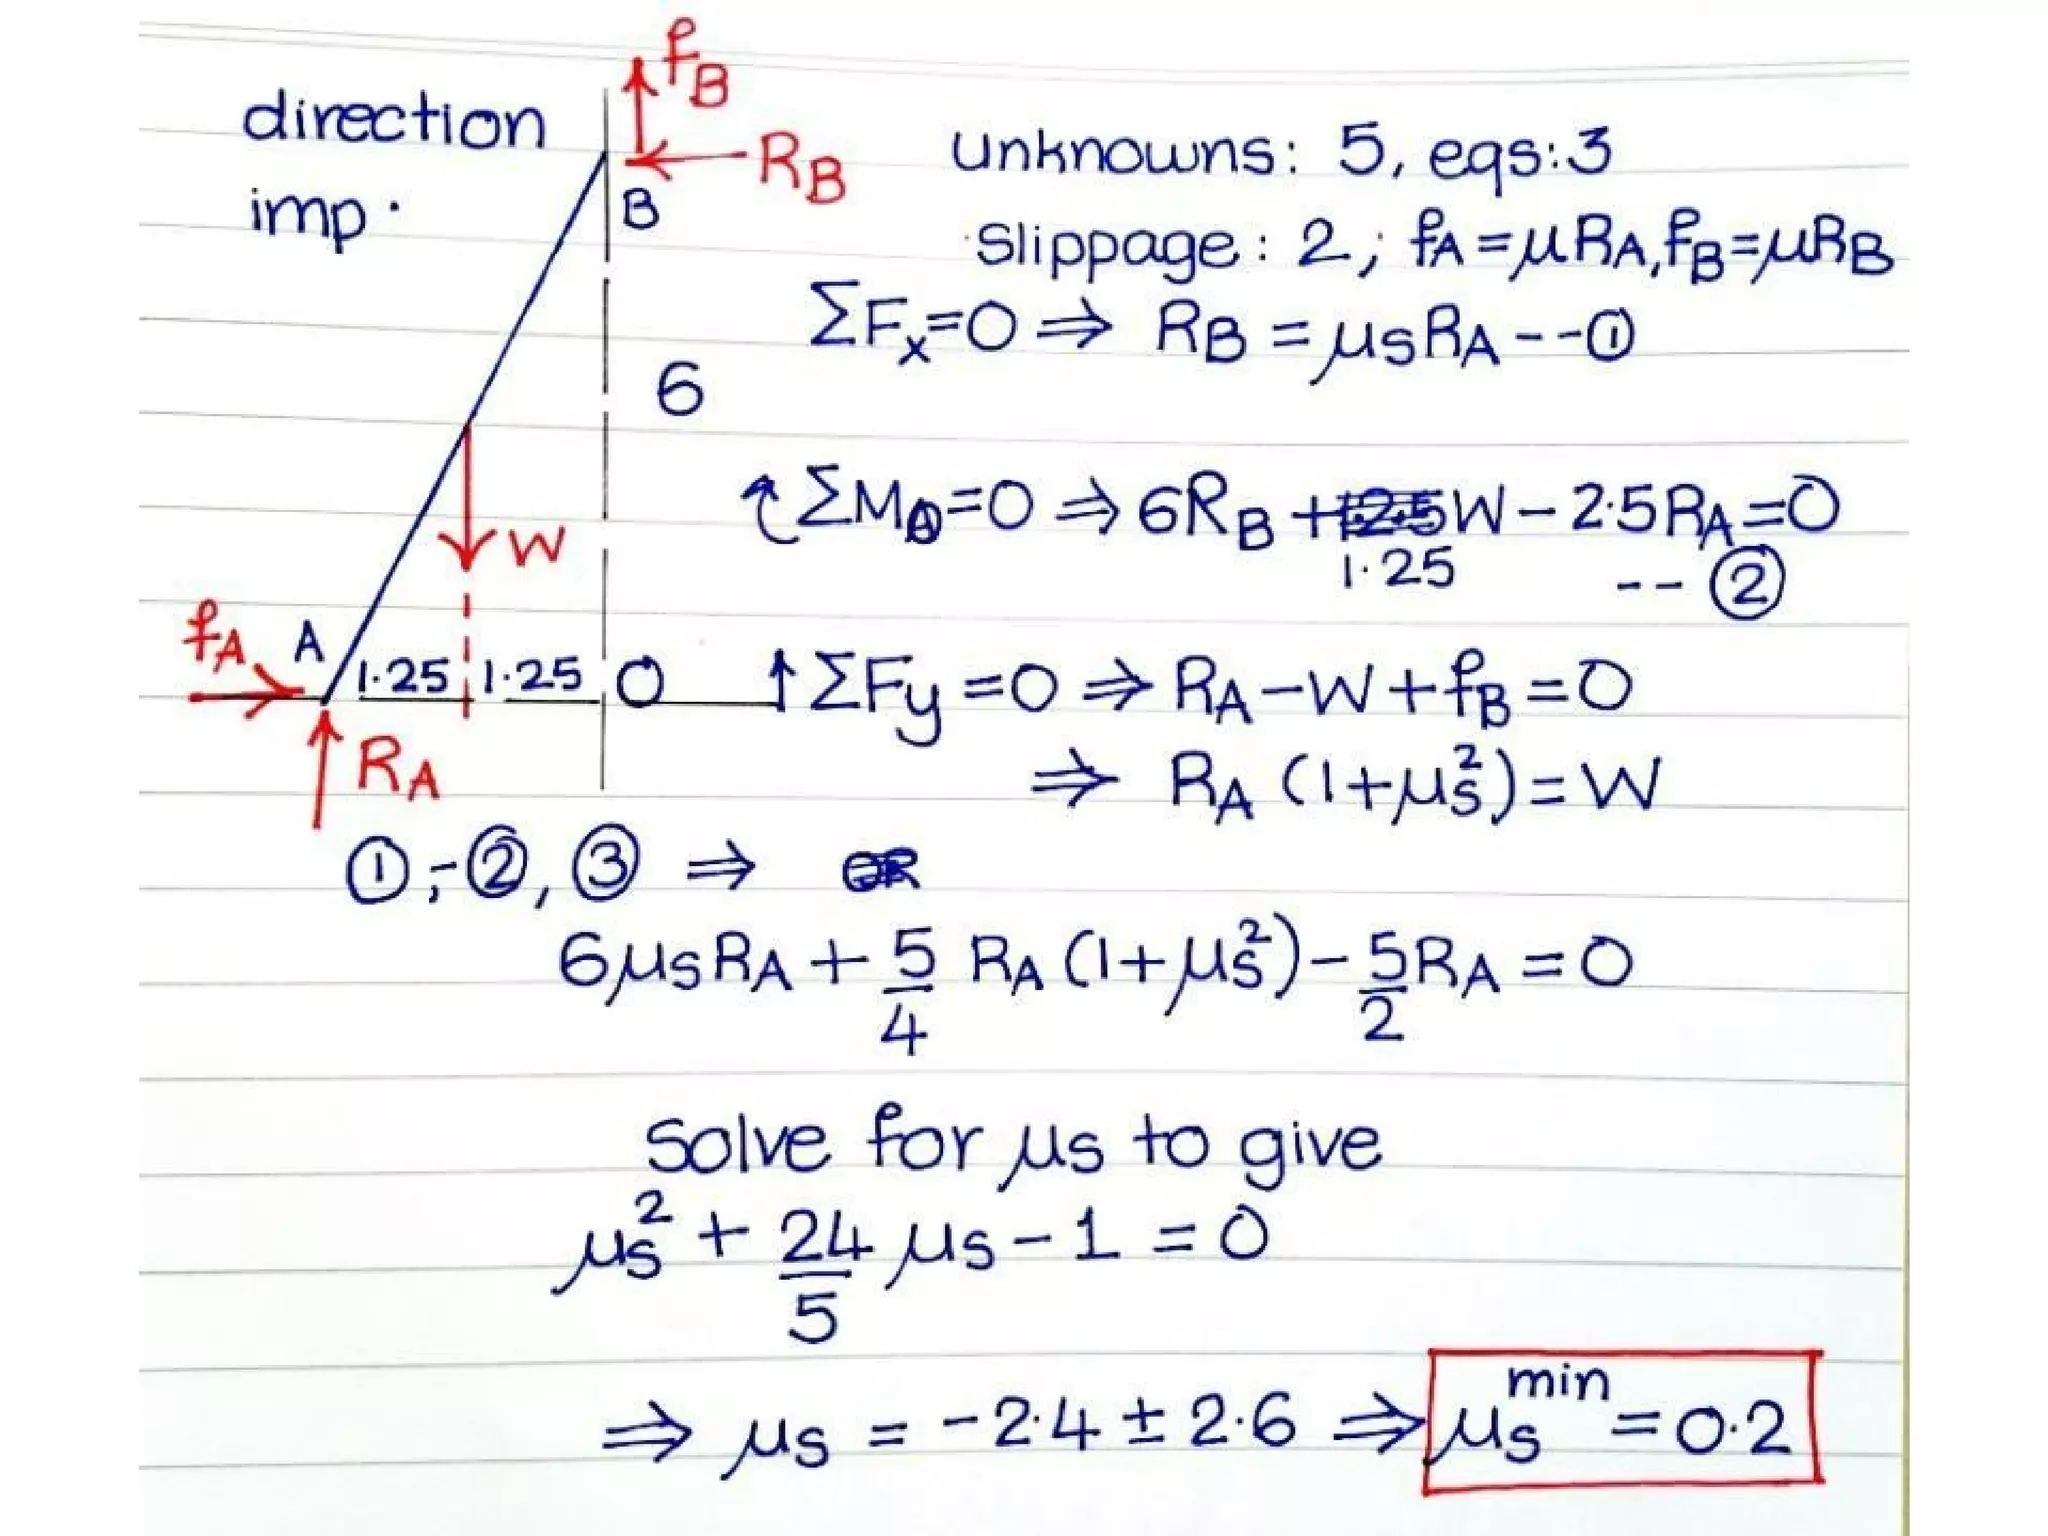 direction
imp.
fB
RB
B
6
W
fA
A
1.25 1.25 O
RA
Unknowns: 5, eqs: 3
Slippage: 2; fA = μRA, fB = μRB
ΣFx = 0 ⇒ RB = μsRA --①
↺ ΣMO = 0 ⇒ 6RB + W - 2.5RA = 0
1.25 -- ②
↑ ΣFy = 0 ⇒ RA - W + fB = 0
⇒ RA (1+μs²) = W
①, ②, ③ ⇒ OR
6μsRA + 5/4 RA (1+μs²) - 5/2 RA = 0
Solve for μs to give
μs² + 24/5 μs - 1 = 0
⇒ μs = -2.4 ± 2.6 ⇒ μs^min = 0.2